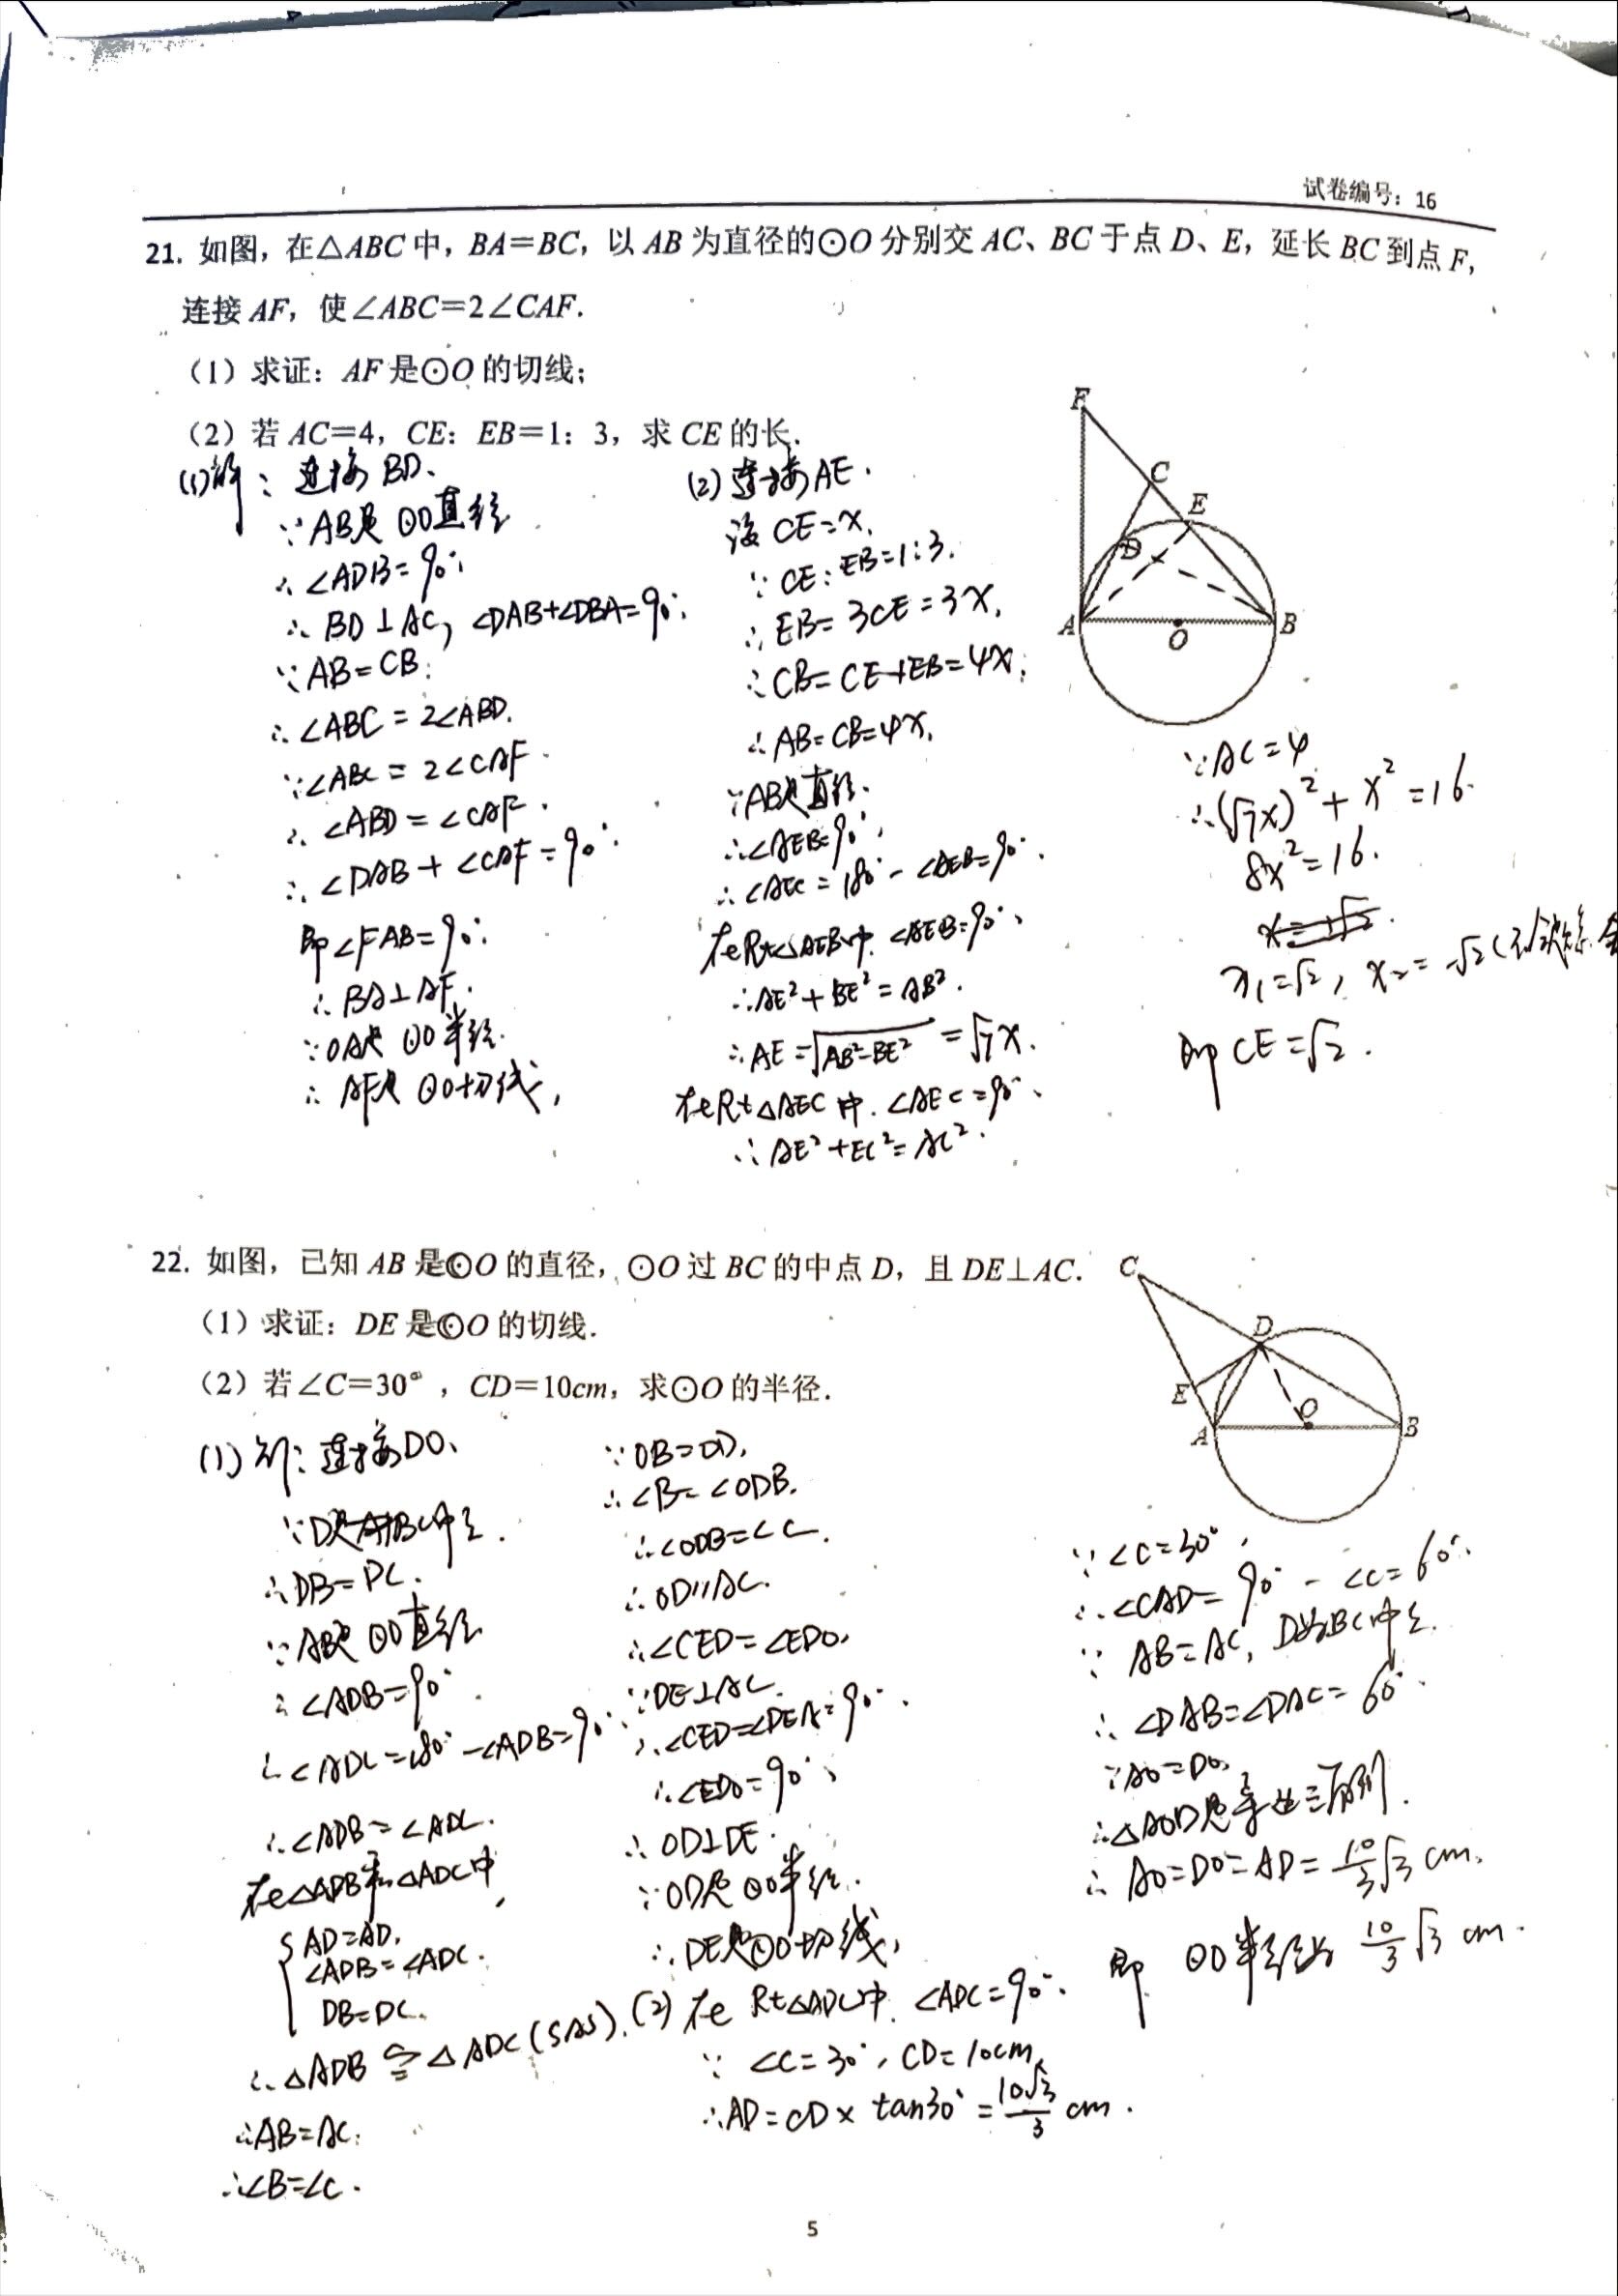 试卷编号：16
21. 如图，在△ABC中，BA＝BC，以AB为直径的⊙O分别交AC、BC于点D、E，延长BC到点F，
连接AF，使∠ABC＝2∠CAF.
（1）求证：AF是⊙O的切线；
（2）若AC＝4，CE：EB＝1：3，求CE的长.
F
C
E
D
A
O
B
(1)解：连接BD.
∵AB是⊙O直径
∴∠ADB=90°.
∴BD⊥AC, ∠DAB+∠DBA=90°.
∵AB=CB.
∴∠ABC=2∠ABD.
∵∠ABC=2∠CAF.
∴∠ABD=∠CAF.
∴∠DAB+∠CAF=90°.
即∠FAB=90°.
∴BA⊥AF.
∵OA是⊙O半径.
∴AF是⊙O切线,
(2)连接AE.
设CE=x.
∵CE:EB=1:3.
∴EB=3CE=3x.
∴CB=CE+EB=4x.
∴AB=CB=4x.
∵AB是直径.
∴∠AEB=90°.
∴∠AEC=180°-∠AEB=90°.
在Rt△AEB中.∠AEB=90°.
∴AE²+BE²=AB².
∴AE=√AB²-BE²=√7x.
在Rt△AEC中.∠AEC=90°.
∴AE²+EC²=AC².
∵AC=4
∴(√7x)²+x²=16.
8x²=16.
x₁=√2, x₂=-√2(
即CE=√2.
22. 如图，已知AB是⊙O的直径，⊙O过BC的中点D，且DE⊥AC.
（1）求证：DE是⊙O的切线.
（2）若∠C=30°，CD=10cm，求⊙O的半径.
C
D
E
O
A
B
(1)解：连接DO.
∵D是BC中点.
∴DB=DC.
∵AB是⊙O直径
∴∠ADB=90°.
∴∠ADC=180°-∠ADB=90°.
∴∠ADB=∠ADC.
在△ADB和△ADC中,
AD=AD.
∠ADB=∠ADC.
DB=DC.
∴△ADB≌△ADC(SAS).
∴AB=AC.
∴∠B=∠C.
∵OB=OD,
∴∠B=∠ODB.
∴∠ODB=∠C.
∴OD∥AC.
∴∠CED=∠EDO,
∵DE⊥AC.
∴∠CED=∠DEA=90°.
∴∠EDO=90°.
∴OD⊥DE.
∵OD是⊙O半径.
∴DE是⊙O切线,
(2)在Rt△ADC中.∠ADC=90°.
∵∠C=30°,CD=10cm,
∴AD=CD×tan30°=10√3/3 cm.
∵∠C=30°,
∴∠CAD=90°-∠C=60°.
∵AB=AC, D为BC中点.
∴∠DAB=∠DAC=60°.
∵AO=DO,
∴△AOD是等边三角形.
∴AO=DO=AD=10/3√3 cm.
即⊙O半径为10/3√3 cm.
5